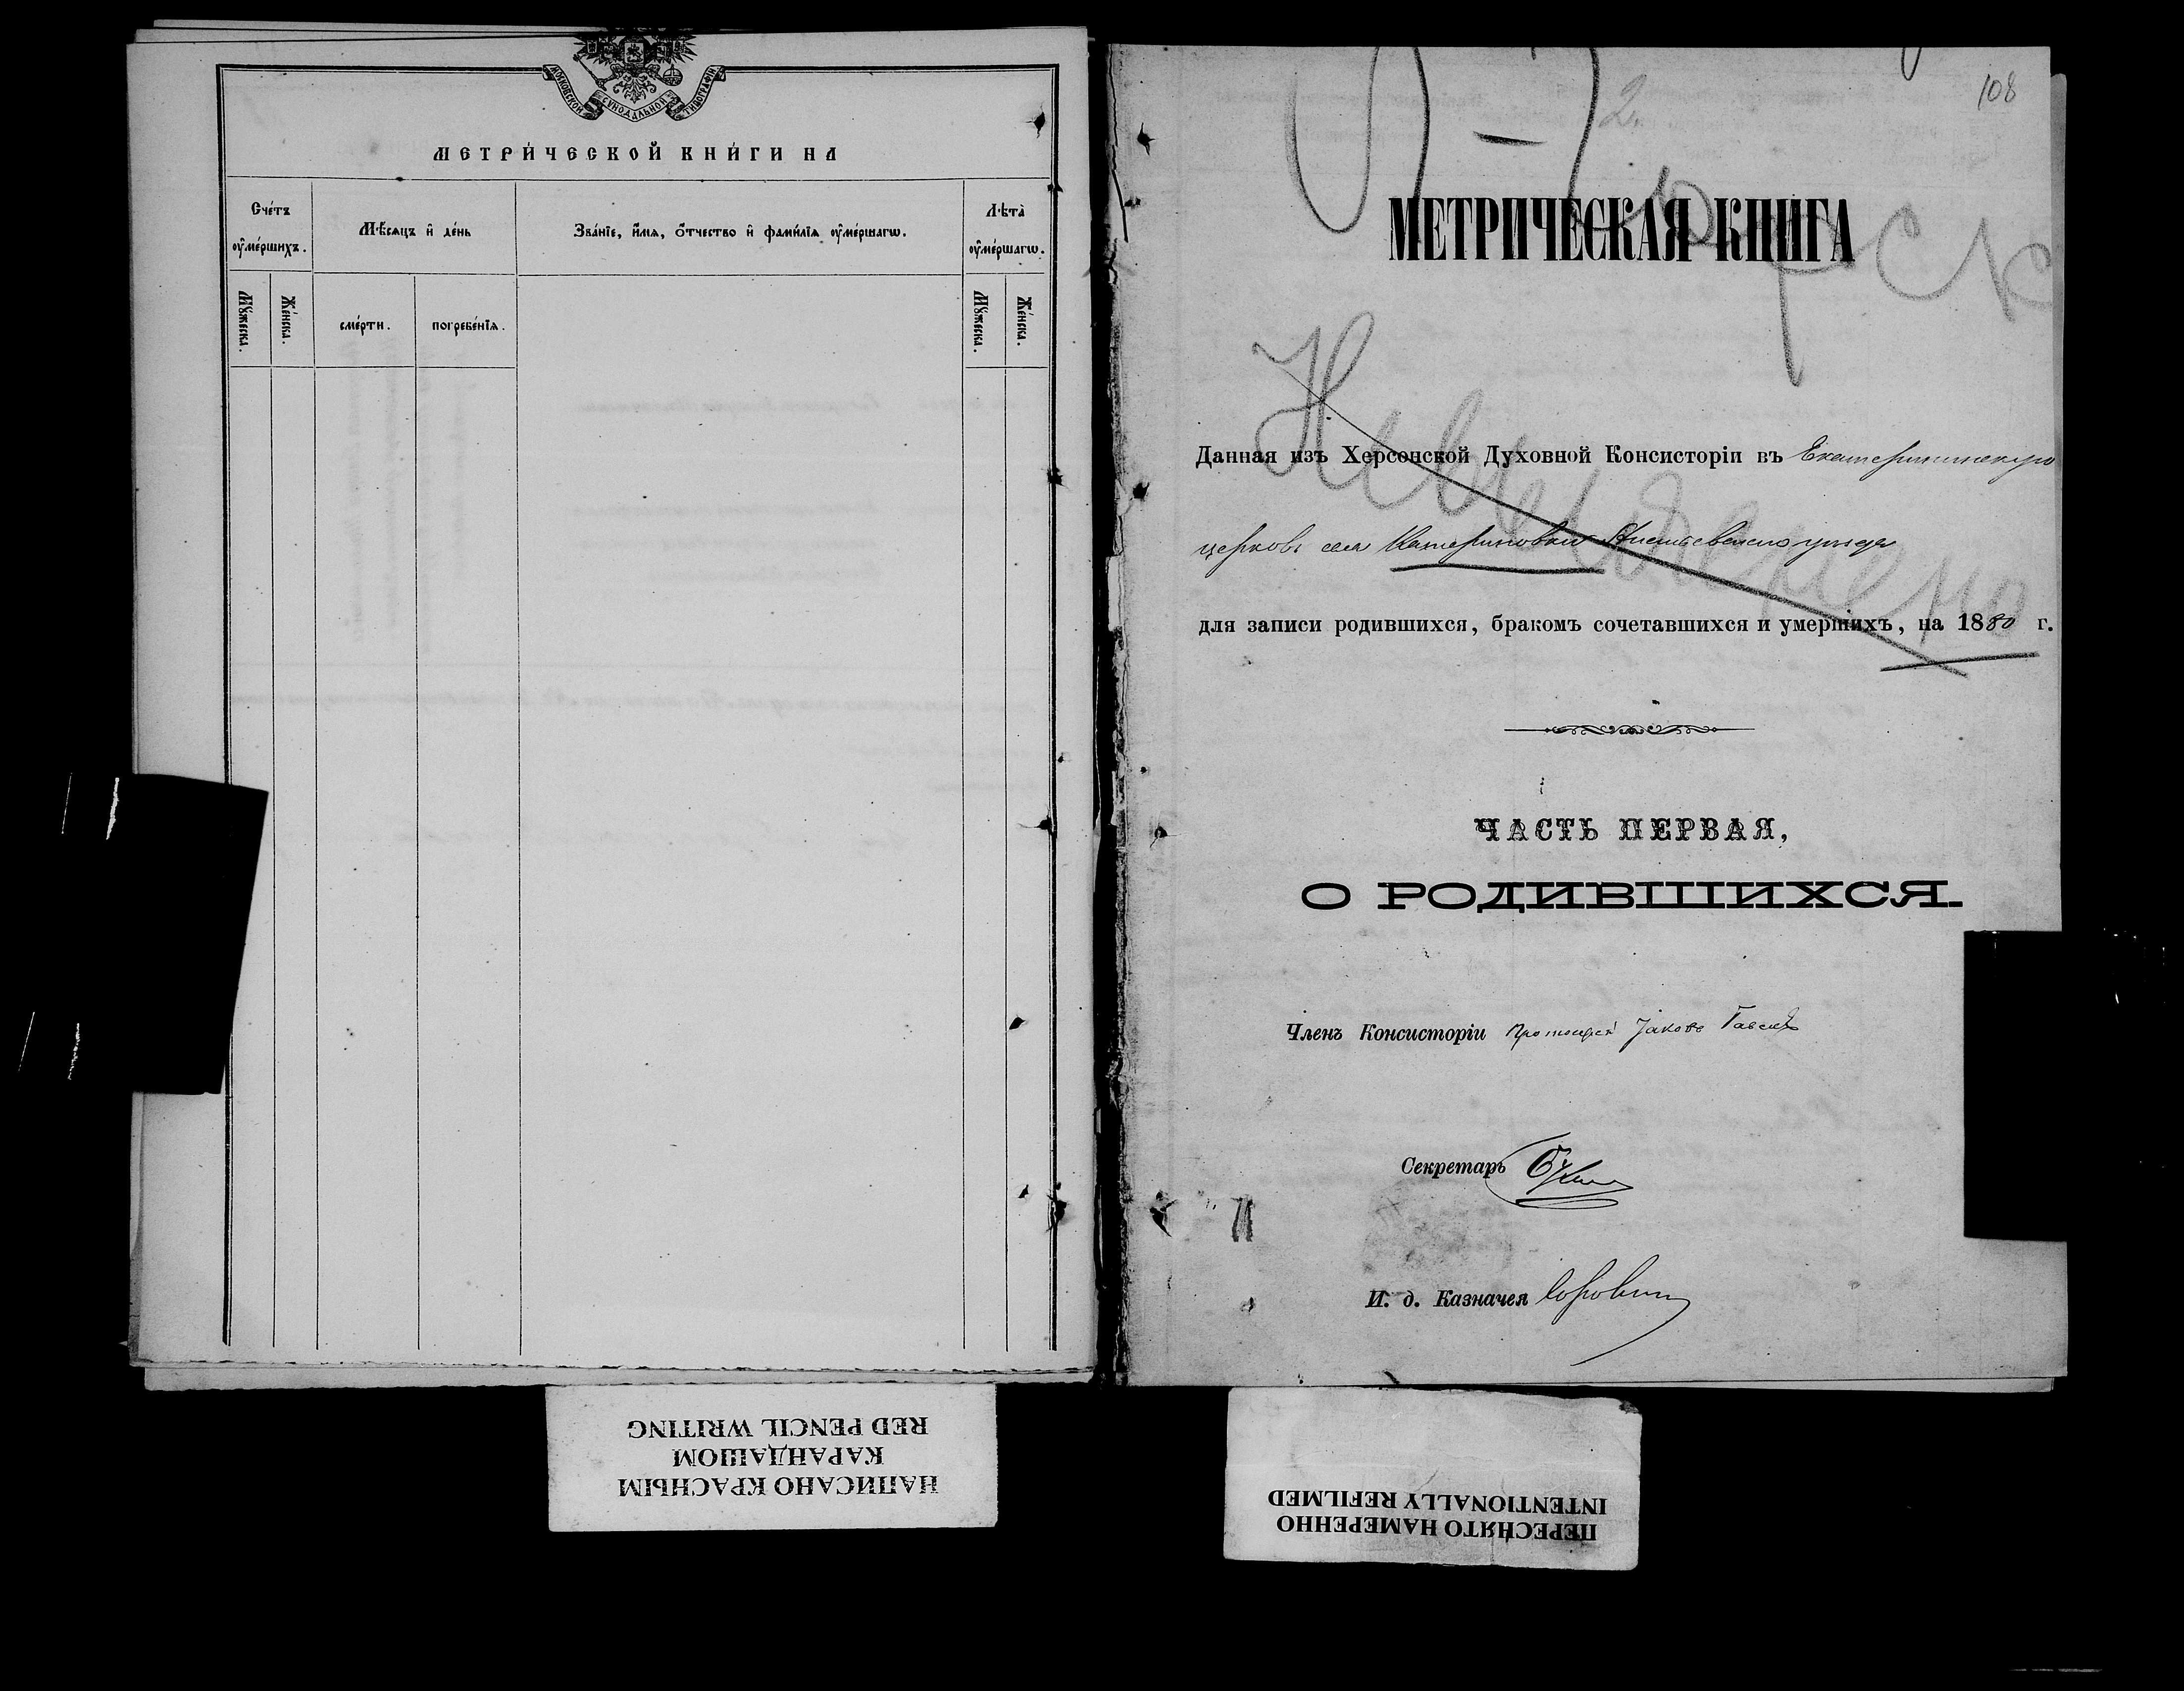 МОСКОВСКОЙ СѴНОДАЛЬНОЙ ТИПОГРАФІИ
МЕТРИ́ЧЕСКОЙ КНИ́ГИ НА
Сче́тъ ᲂу҆ме́ршихъ.
Мѣ́сяцъ и҆ де́нь
Зва́нїе, и҆́мя, ѻ҆́тчество и҆ фами́лїя ᲂу҆ме́ршагѡ.
Лѣ́та ᲂу҆ме́ршагѡ.
Мꙋ́жеска.
Же́нска.
сме́рти.
погребе́нїѧ.
Мꙋ́жеска.
Же́нска.
108
2.
МЕТРИЧЕСКАЯ КНИГА
Данная изъ Херсонской Духовной Консисторіи въ
церковь села Катериновки уезда
для записи родившихся, бракомъ сочетавшихся и умершихъ, на 1880 г.
ЧАСТЬ ПЕРВАЯ,
О РОДИВШИХСЯ.
Членъ Консисторіи Протоіерей Іаковъ
Секретарь
И. д. Казначея
НАПИСАНО КРАСНЫМ
КАРАНДАШОМ
RED PENCIL WRITING
ПЕРЕСНЯТО НАМЕРЕННО
INTENTIONALLY REFILMED